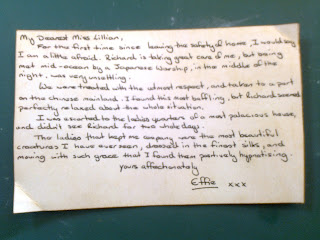 My Dearest Miss Lillian,
For the first time since leaving the safety of home, I would say
I am a little afraid. Richard is taking great care of me, but being
met mid-ocean by a Japanese Warship, in the middle of the
night, was very unsettling.
We were treated with the utmost respect, and taken to a port
on the chinese mainland. I found this most baffling, but Richard seemed
perfectly relaxed about the whole situation.
I was escorted to the ladies quarters of a most palacious house,
and didn't see Richard for two whole days.
The ladies that kept me company were the most beautiful
creatures I have ever seen, dressed in the finest silks, and
moving with such grace that I found them positively hypnotizing.
yours affectionately
Effie xxx